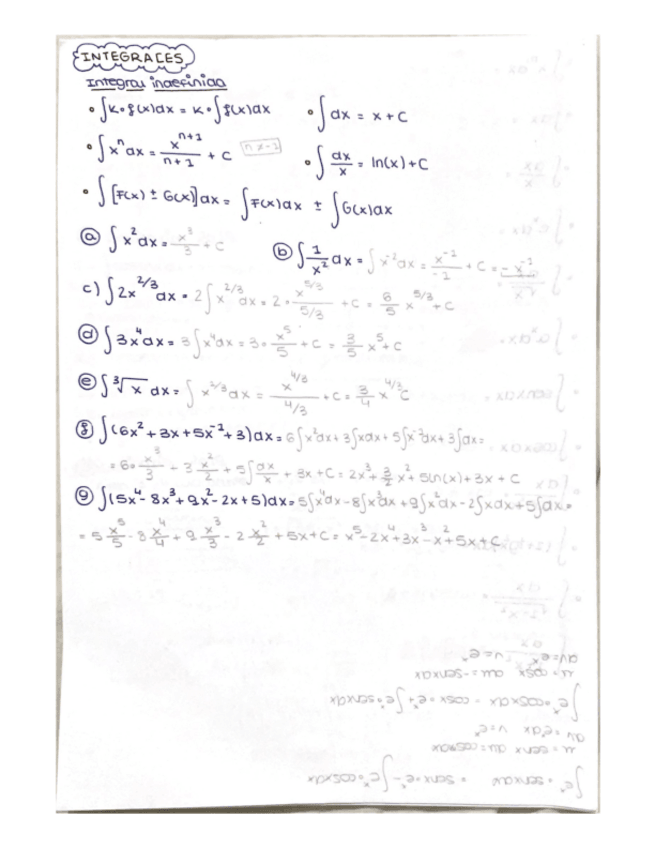 INTEGRALES
Integral indefinida
• ∫k·f(x)dx = k·∫f(x)dx • ∫dx = x + C
• ∫xⁿdx = xⁿ⁺¹/(n+1) + C n≠-1 • ∫dx/x = ln(x) + C
• ∫[F(x) ± G(x)]dx = ∫F(x)dx ± ∫G(x)dx
ⓐ ∫x²dx = x³/3 + C ⓑ ∫1/x² dx = ∫x⁻²dx = x⁻¹/-1 + C = -x⁻¹
c) ∫2x^(2/3)dx = 2∫x^(2/3)dx = 2· x^(5/3)/(5/3) + C = 6/5 x^(5/3) + C
ⓓ ∫3x⁴dx = 3∫x⁴dx = 3· x⁵/5 + C = 3/5 x⁵ + C
ⓔ ∫∛x dx = ∫x^(1/3)dx = x^(4/3)/(4/3) + C = 3/4 x^(4/3) C
ⓕ ∫(6x² + 3x + 5x⁻¹ + 3)dx = 6∫x²dx + 3∫xdx + 5∫x⁻¹dx + 3∫dx =
= 6· x³/3 + 3 x²/2 + 5∫dx/x + 3x + C = 2x³ + 3/2 x² + 5ln(x) + 3x + C
ⓖ ∫(5x⁴ - 8x³ + 9x² - 2x + 5)dx = 5∫x⁴dx - 8∫x³dx + 9∫x²dx - 2∫xdx + 5∫dx =
= 5 x⁵/5 - 8 x⁴/4 + 9 x³/3 - 2 x²/2 + 5x + C = x⁵ - 2x⁴ + 3x³ - x² + 5x + C